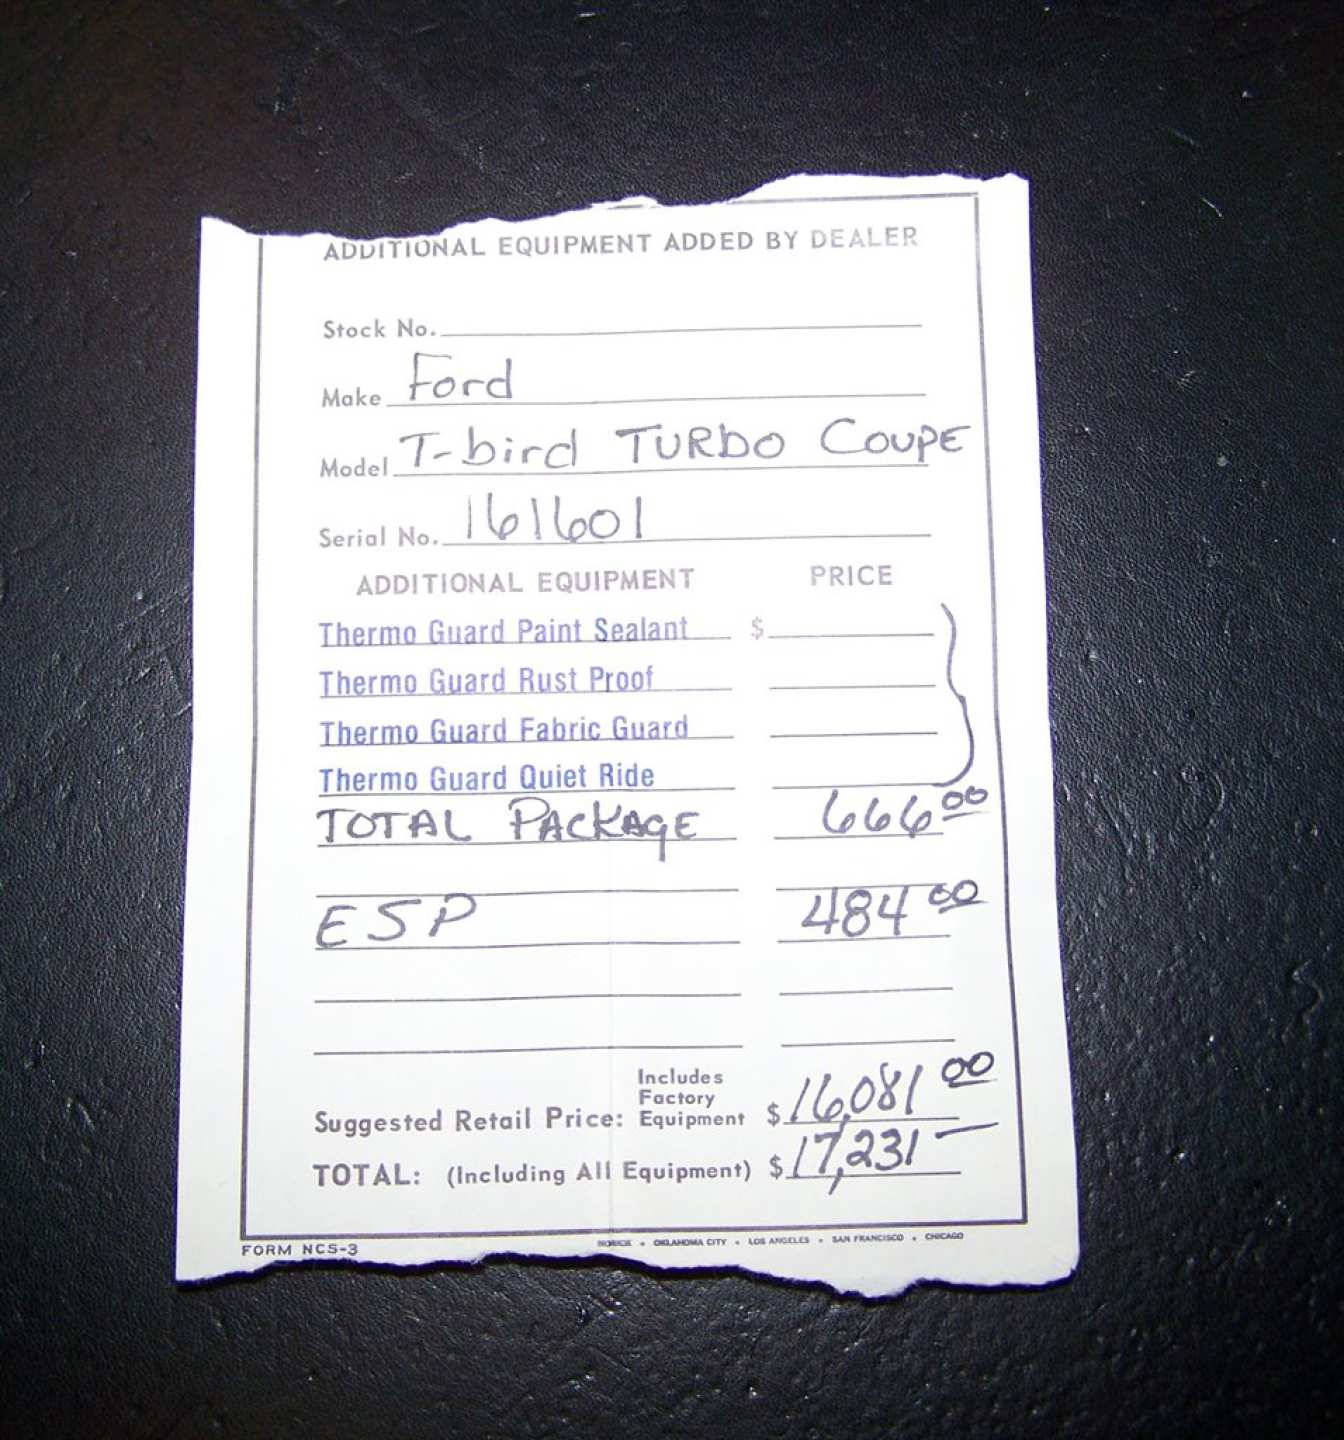 ADDITIONAL EQUIPMENT ADDED BY DEALER
Stock No.
Make Ford
Model T-bird TURBO COUPE
Serial No. 161601
ADDITIONAL EQUIPMENT PRICE
Thermo Guard Paint Sealant $
Thermo Guard Rust Proof
Thermo Guard Fabric Guard
Thermo Guard Quiet Ride
TOTAL PACKAGE 666.00
ESP 484.00
Includes
Factory
Suggested Retail Price: Equipment $16,081.00
TOTAL: (Including All Equipment) $17,231 —
FORM NCS-3 NORICK • OKLAHOMA CITY • LOS ANGELES • SAN FRANCISCO • CHICAGO